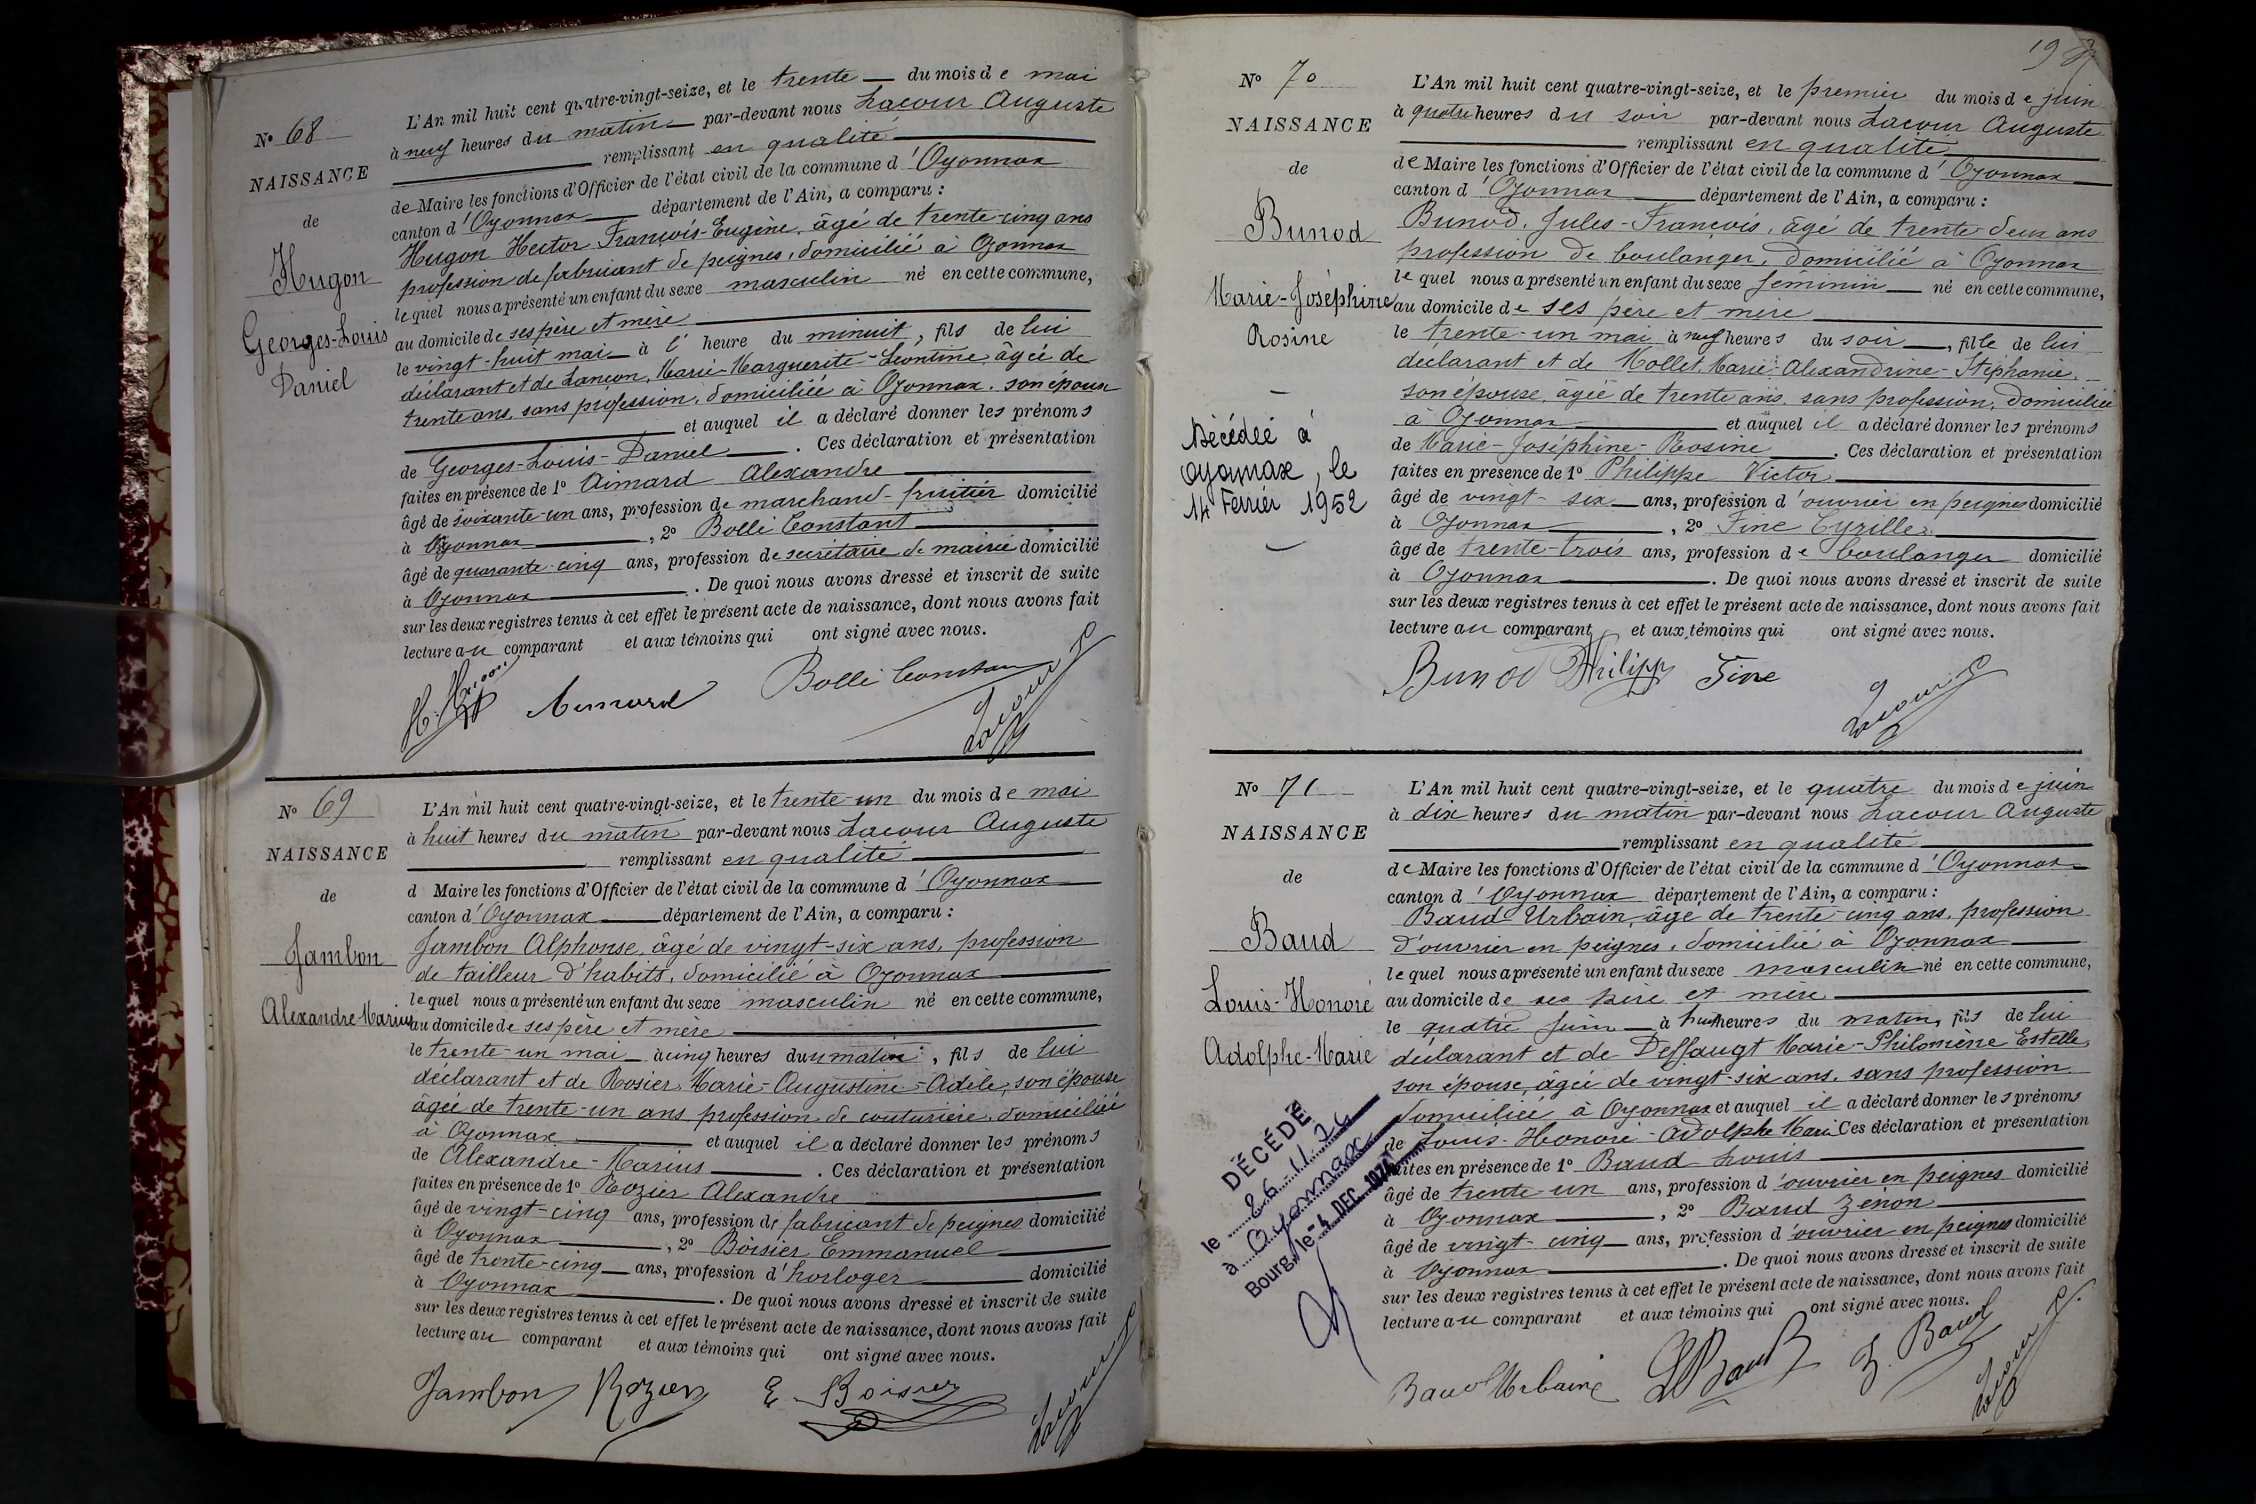 Nº 68
NAISSANCE
de
Hugon
Georges-Louis
Daniel
L'An mil huit cent quatre-vingt-seize, et le trente du mois de mai
à neuf heures du matin par-devant nous Lacour Auguste
remplissant en qualité
de Maire les fonctions d'Officier de l'état civil de la commune d'Oyonnax
canton d'Oyonnax département de l'Ain, a comparu :
Hugon Hector François-Eugène, âgé de trente-cinq ans
profession de fabricant de peignes, domicilié à Oyonnax
lequel nous a présenté un enfant du sexe masculin né en cette commune,
au domicile de ses père et mère
le vingt-huit mai à l' heure du minuit, fils de lui
déclarant et de Lançon, Marie-Marguerite-Léontine âgée de
trente ans, sans profession, domiciliée à Oyonnax. son épouse
et auquel il a déclaré donner les prénoms
de Georges-Louis-Daniel . Ces déclaration et présentation
faites en présence de 1º Aimard Alexandre
âgé de soixante-un ans, profession de marchand-fruitier domicilié
à Oyonnax , 2º Bolle Constant
âgé de quarante-cinq ans, profession de secrétaire de mairie domicilié
à Oyonnax . De quoi nous avons dressé et inscrit de suite
sur les deux registres tenus à cet effet le présent acte de naissance, dont nous avons fait
lecture au comparant et aux témoins qui ont signé avec nous.
Aimard Bolle Constant Lacour
Nº 69
NAISSANCE
de
Jambon
Alexandre-Marius
L'An mil huit cent quatre-vingt-seize, et le trente-un du mois de mai
à huit heures du matin par-devant nous Lacour Auguste
remplissant en qualité
d Maire les fonctions d'Officier de l'état civil de la commune d'Oyonnax
canton d'Oyonnax département de l'Ain, a comparu :
Jambon Alphonse, âgé de vingt-six ans, profession
de tailleur d'habits, domicilié à Oyonnax
lequel nous a présenté un enfant du sexe masculin né en cette commune,
au domicile de ses père et mère
le trente-un mai à cinq heures du matin, fils de lui
déclarant et de Rosier, Marie-Augustine-Adèle, son épouse
âgée de trente-un ans profession de couturière, domiciliée
à Oyonnax et auquel il a déclaré donner les prénoms
de Alexandre-Marius . Ces déclaration et présentation
faites en présence de 1º Rozier Alexandre
âgé de vingt-cinq ans, profession de fabricant de peignes domicilié
à Oyonnax , 2º Boisier Emmanuel
âgé de trente-cinq ans, profession d'horloger domicilié
à Oyonnax . De quoi nous avons dressé et inscrit de suite
sur les deux registres tenus à cet effet le présent acte de naissance, dont nous avons fait
lecture au comparant et aux témoins qui ont signé avec nous.
Jambon Rozier E. Boisier Lacour
19
Nº 70
NAISSANCE
de
Bunod
Marie-Joséphine
Rosine
Décédée à
Oyonnax, le
14 Février 1952
L'An mil huit cent quatre-vingt-seize, et le premier du mois de juin
à quatre heures du soir par-devant nous Lacour Auguste
remplissant en qualité
de Maire les fonctions d'Officier de l'état civil de la commune d'Oyonnax
canton d'Oyonnax département de l'Ain, a comparu :
Bunod, Jules-François, âgé de trente-deux ans
profession de boulanger, domicilié à Oyonnax
lequel nous a présenté un enfant du sexe féminin né en cette commune,
au domicile de ses père et mère
le trente-un mai à neuf heures du soir, fille de lui
déclarant et de Mollet, Marie-Alexandrine-Stéphanie,
son épouse, âgée de trente ans, sans profession, domiciliée
à Oyonnax et auquel il a déclaré donner les prénoms
de Marie-Joséphine-Rosine . Ces déclaration et présentation
faites en présence de 1º Philippe Victor
âgé de vingt-six ans, profession d'ouvrier en peignes domicilié
à Oyonnax , 2º Fine Cyrille
âgé de trente-trois ans, profession de boulanger domicilié
à Oyonnax . De quoi nous avons dressé et inscrit de suite
sur les deux registres tenus à cet effet le présent acte de naissance, dont nous avons fait
lecture au comparant et aux témoins qui ont signé avec nous.
Bunod Philippe Fine Lacour
Nº 71
NAISSANCE
de
Baud
Louis-Honoré
Adolphe-Marie
DÉCÉDÉ
le 26.11.76
à Oyonnax
Bourg, le -4 DEC. 1976
L'An mil huit cent quatre-vingt-seize, et le quatre du mois de juin
à dix heures du matin par-devant nous Lacour Auguste
remplissant en qualité
de Maire les fonctions d'Officier de l'état civil de la commune d'Oyonnax
canton d'Oyonnax département de l'Ain, a comparu :
Baud Urbain, âgé de trente-cinq ans, profession
d'ouvrier en peignes, domicilié à Oyonnax
lequel nous a présenté un enfant du sexe masculin né en cette commune,
au domicile de ses père et mère
le quatre juin à huit heures du matin, fils de lui
déclarant et de Deffaugt Marie-Philomène Estelle,
son épouse, âgée de vingt-six ans, sans profession
domiciliée à Oyonnax et auquel il a déclaré donner les prénoms
de Louis-Honoré-Adolphe Marie Ces déclaration et présentation
faites en présence de 1º Baud Louis
âgé de trente-un ans, profession d'ouvrier en peignes domicilié
à Oyonnax , 2º Baud Zénon
âgé de vingt-cinq ans, profession d'ouvrier en peignes domicilié
à Oyonnax . De quoi nous avons dressé et inscrit de suite
sur les deux registres tenus à cet effet le présent acte de naissance, dont nous avons fait
lecture au comparant et aux témoins qui ont signé avec nous.
Baud Urbain L. Baud Z. Baud Lacour